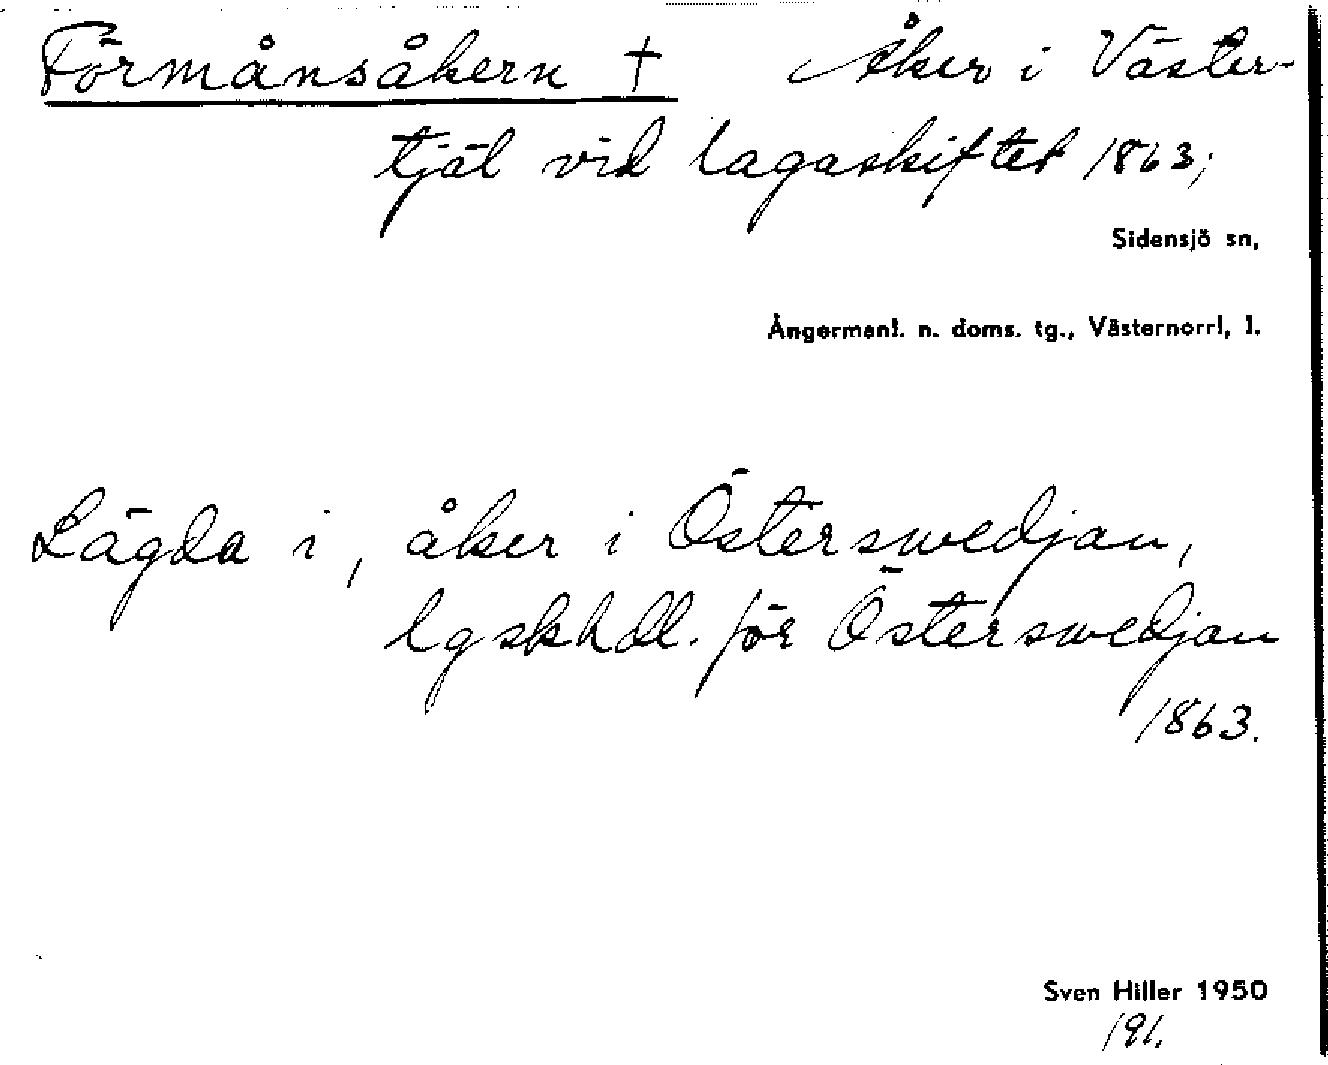 Förmånsåkern † Åker i Väster-
tjäl vid lagaskiftet 1863;
Sidensjö sn,
Ångermanl. n. doms. tg., Västernorrl. l.
Lägda i, åker i Österswedjan,
lgskhdl. för Österswedjan
1863.
Sven Hiller 1950
191.